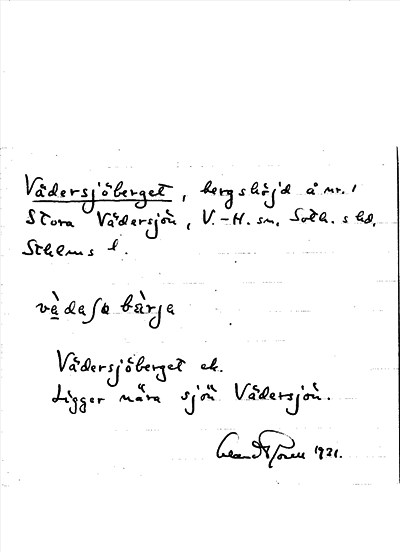 Vädersjöberget, bergshöjd å nr. 1
Stora Vädersjön, V.-H. sn, Soth. s hd.
Sthlms l.
vä̀daʃø bàrja
Vädersjöberget ek.
Ligger nära sjön Vädersjön.
1921.